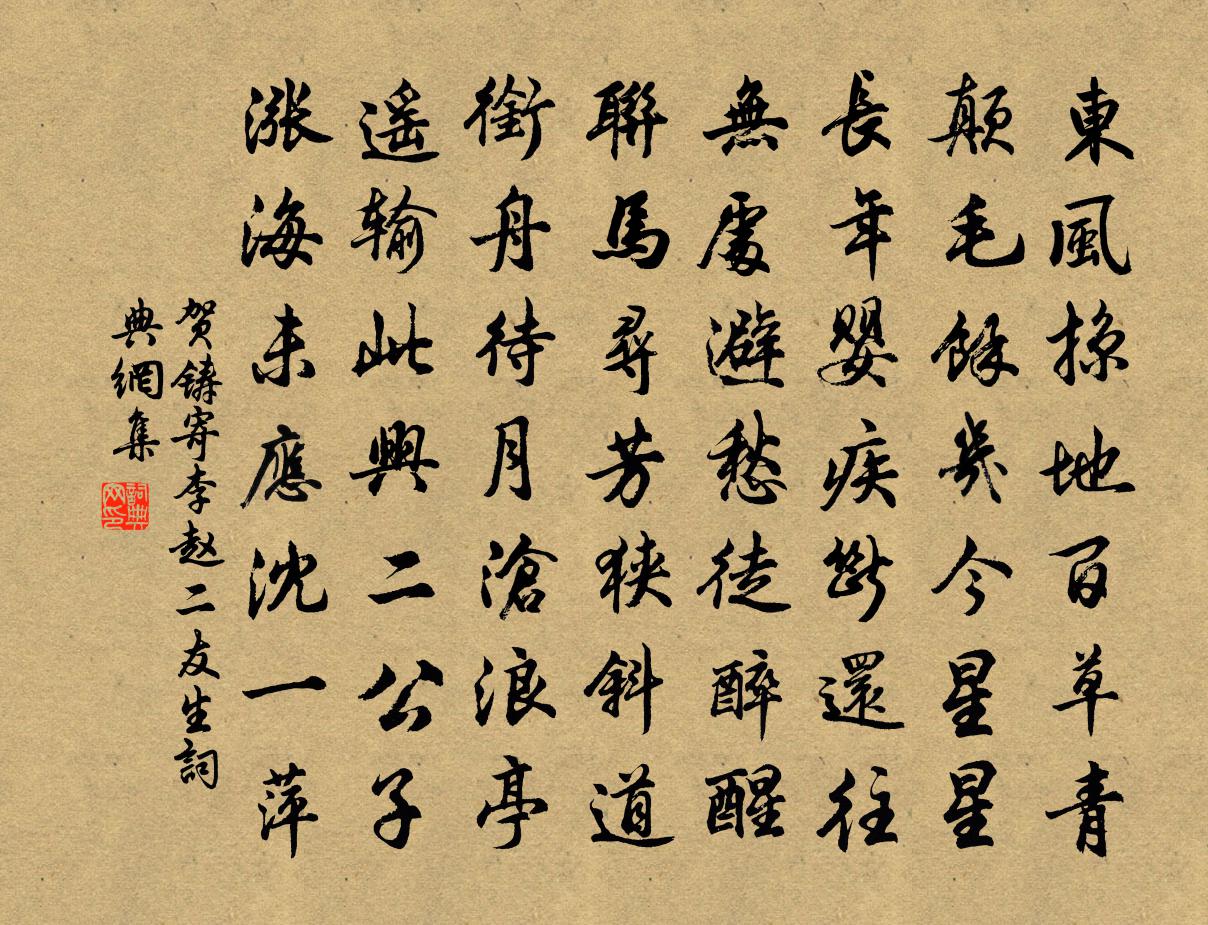 東風掠地百草青
顛毛餘幾今星星
長年嬰疾斷還往
無處避愁徒醉醒
聯馬尋芳狹斜道
銜舟待月滄浪亭
遥输此興二公子
漲海未應沈一萍
贺鑄寄李赵二友生詞
典網集
詞典
网印